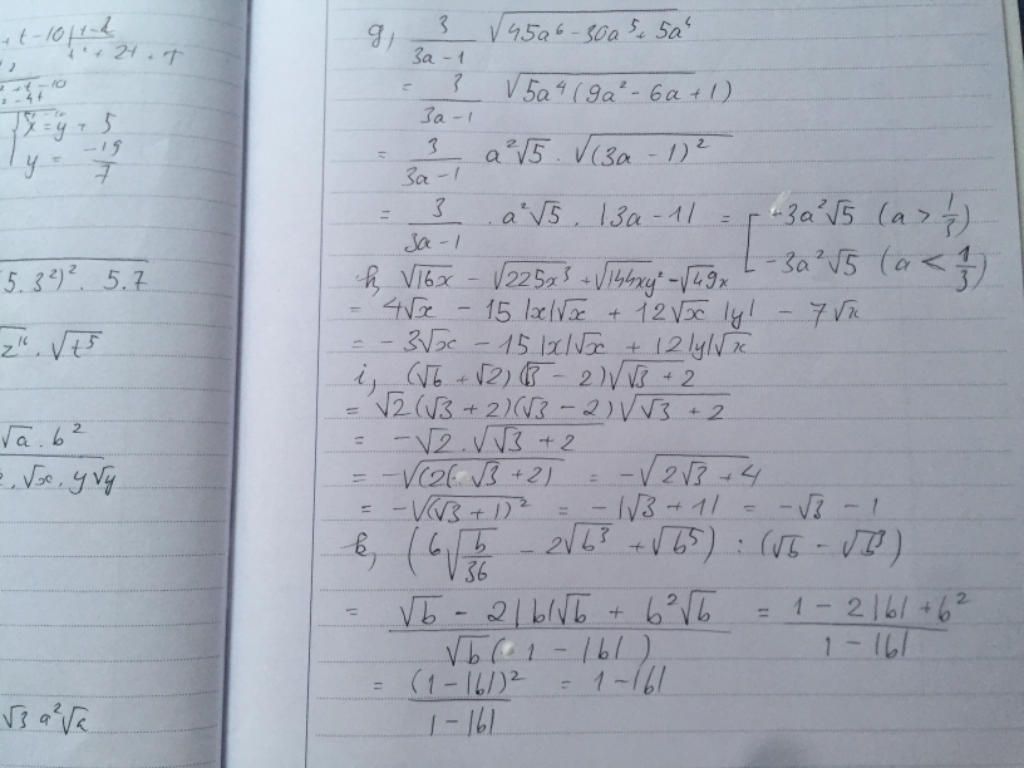 x = y + 5
y = -19/7
5.3²)² . 5.7
. √t⁵
√a . b²
. √x . y√y
√3 a²√a
g, 3/(3a - 1) √(45a⁶ - 30a⁵ + 5a⁴)
= 3/(3a - 1) √(5a⁴(9a² - 6a + 1))
= 3/(3a - 1) a²√5 . √((3a - 1)²)
= 3/(3a - 1) . a²√5 . |3a - 1| = [ 3a²√5 (a > 1/3)
-3a²√5 (a < 1/3)
h, √(16x) - √(225x³) + √(144xy²) - √(49x)
= 4√x - 15|x|√x + 12√x |y| - 7√x
= - 3√x - 15|x|√x + 12|y|√x
i, (√6 + √2)(√3 - 2)√(√3 + 2)
= √2(√3 + 2)(√3 - 2)√(√3 + 2)
= -√2 . √(√3 + 2)
= -√(2(√3 + 2)) = -√(2√3 + 4)
= -√((√3 + 1)²) = -|√3 + 1| = -√3 - 1
k, (6√(b/36) - 2√(b³) + √(b⁵)) : (√b - √(b³))
= (√b - 2|b|√b + b²√b)/(√b(1 - |b|)) = (1 - 2|b| + b²)/(1 - |b|)
= (1 - |b|)²/(1 - |b|) = 1 - |b|